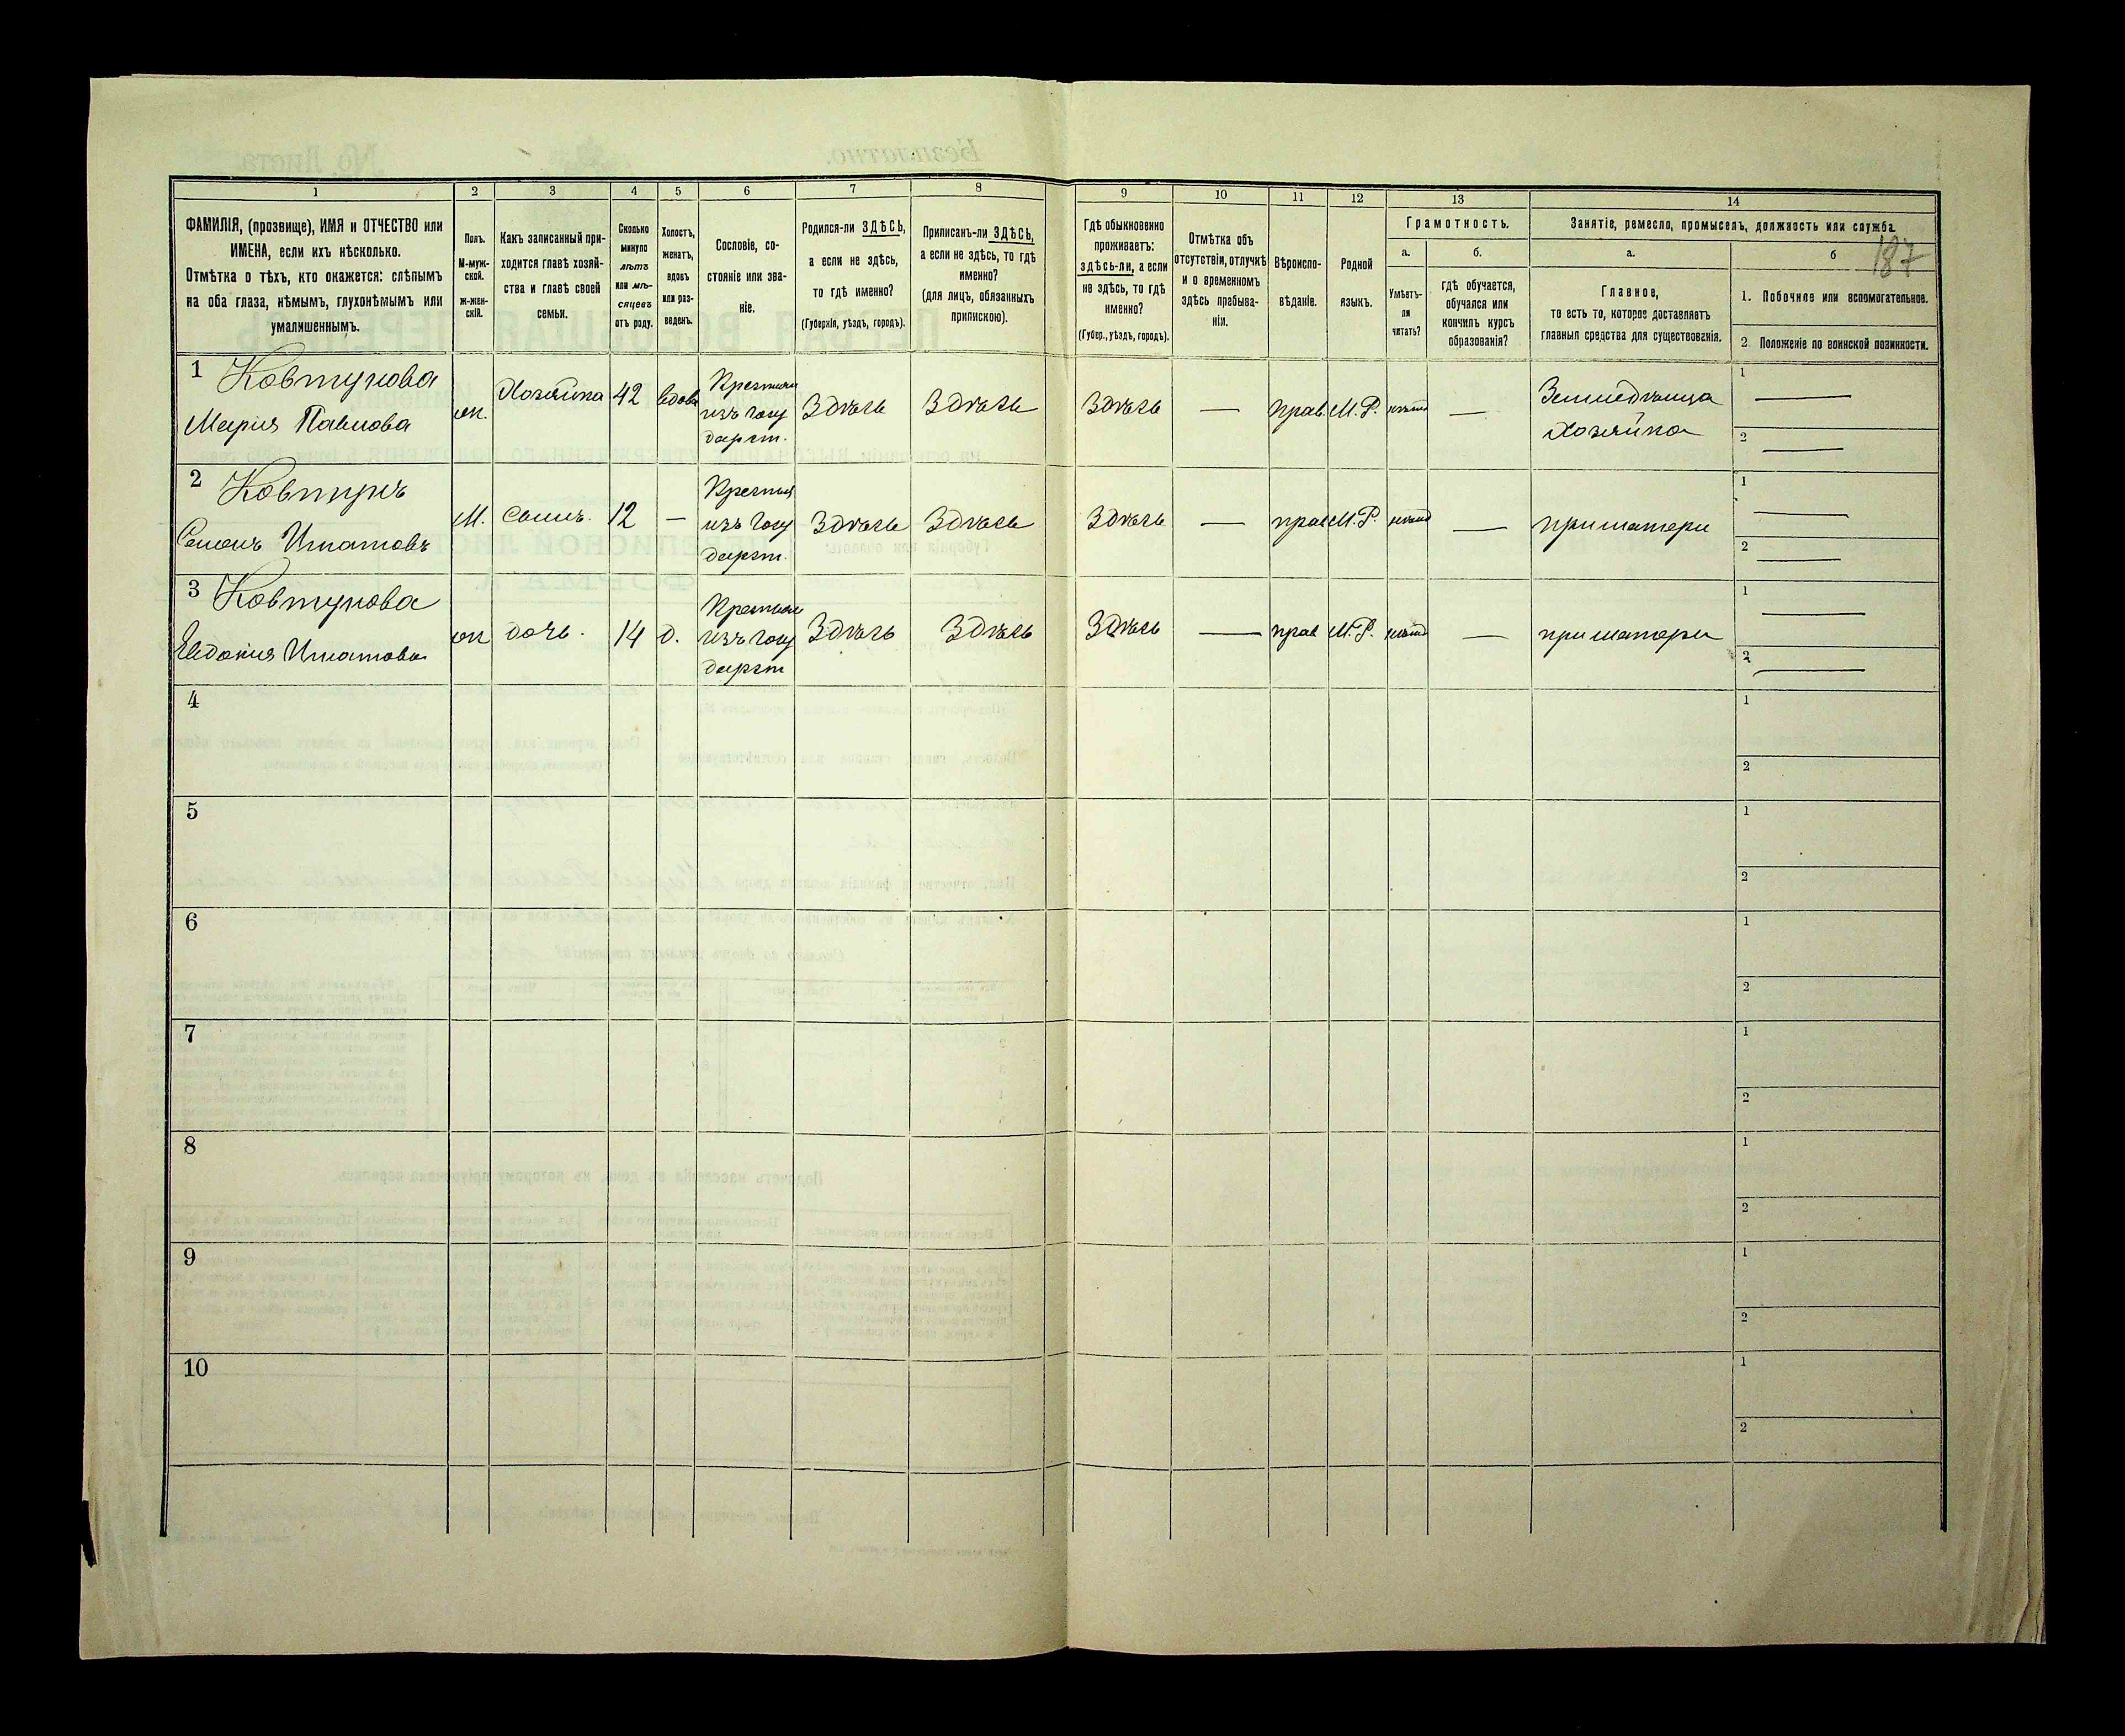 1 2 3 4 5 6 7 8 9 10 11 12 13 14
ФАМИЛІЯ, (прозвище), ИМЯ и ОТЧЕСТВО или
ИМЕНА, если ихъ нѣсколько.
Отмѣтка о тѣхъ, кто окажется: слѣпымъ
на оба глаза, нѣмымъ, глухонѣмымъ или
умалишеннымъ.
Полъ.
М-муж-
ской.
ж-жен-
скій.
Какъ записанный при-
ходится главѣ хозяй-
ства и главѣ своей
семьи.
Сколько
минуло
лѣтъ
или мѣ-
сяцевъ
отъ роду.
Холостъ,
женатъ,
вдовъ
или раз-
веденъ.
Сословіе, со-
стояніе или зва-
ніе.
Родился-ли ЗДѢСЬ,
а если не здѣсь,
то гдѣ именно?
(Губернія, уѣздъ, городъ).
Приписанъ-ли ЗДѢСЬ,
а если не здѣсь, то гдѣ
именно?
(для лицъ, обязанныхъ
припискою).
Гдѣ обыкновенно
проживаетъ:
здѣсь-ли, а если
не здѣсь, то гдѣ
именно?
(Губер., уѣздъ, городъ).
Отмѣтка объ
отсутствіи, отлучкѣ
и о временномъ
здѣсь пребыва-
ніи.
Вѣроиспо-
вѣданіе.
Родной
языкъ.
Грамотность.
а.
Умѣетъ-
ли
читать?
б.
гдѣ обучается,
обучался или
кончилъ курсъ
образованія?
Занятіе, ремесло, промыселъ, должность или служба.
а.
Главное,
то есть то, которое доставляетъ
главныя средства для существованія.
б
187
1. Побочное или вспомогательное.
2. Положеніе по воинской повинности.
1 Ковтунова
Марія Павлова
ж.
Хозяйка
42
вдова
Крестьян
изъ госу
дарст.
Здѣсь
Здѣсь
Здѣсь
—
прав.
М.Р.
нѣтъ
—
Земледѣлица
Хозяйка
1 —
2 —
2 Ковтунъ
Семенъ Игнатовъ
М.
Сынъ.
12
—
Крестьян
изъ госу
дарст.
Здѣсь
Здѣсь
Здѣсь
—
прав
М.Р.
нѣтъ
—
при матери
1 —
2 —
3 Ковтунова
Евдокия Игнатова
ж
дочь.
14
д.
Крестьян
изъ госу
дарст
Здѣсь
Здѣсь
Здѣсь
—
прав
М.Р.
нѣтъ
—
при матери
1 —
2 —
4
1
2
5
1
2
6
1
2
7
1
2
8
1
2
9
1
2
10
1
2